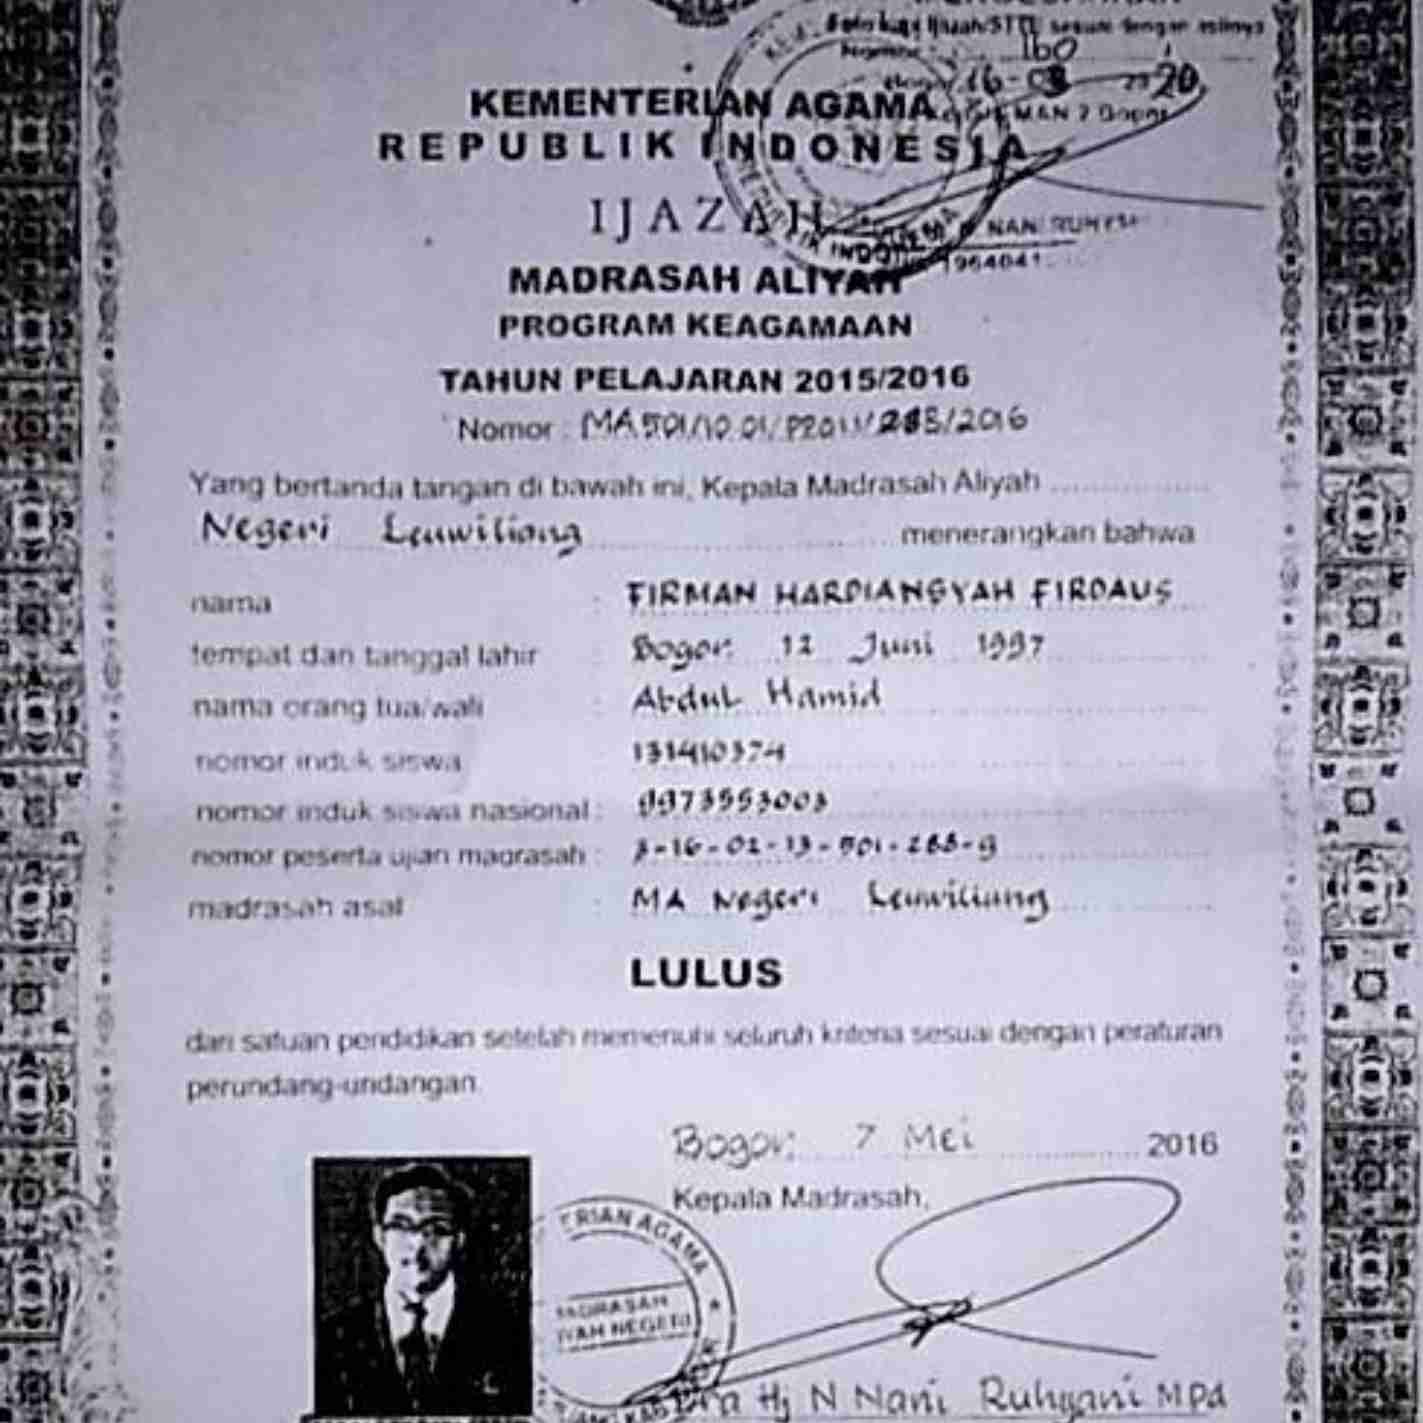 Foto kopi Ijazah/STTB sesuai dengan aslinya
160
16-03 2020
MAN 2 Bogor
KEMENTERIAN AGAMA
REPUBLIK INDONESIA
IJAZAH
NANI RUHYANI
MADRASAH ALIYAH
PROGRAM KEAGAMAAN
TAHUN PELAJARAN 2015/2016
Nomor :
Yang bertanda tangan di bawah ini, Kepala Madrasah Aliyah
Negeri Leuwiliang menerangkan bahwa
nama : FIRMAN HARDIANSYAH FIRDAUS
tempat dan tanggal lahir : Bogor, 12 Juni 1997
nama orang tua/wali : Abdul Hamid
nomor induk siswa : 131410374
nomor induk siswa nasional : 9973553003
nomor peserta ujian madrasah :
madrasah asal : MA Negeri Leuwiliang
LULUS
dari satuan pendidikan setelah memenuhi seluruh kriteria sesuai dengan peraturan
perundang-undangan.
Bogor, 7 Mei 2016
Kepala Madrasah,
Dra Hj N Nani Ruhyani MPd